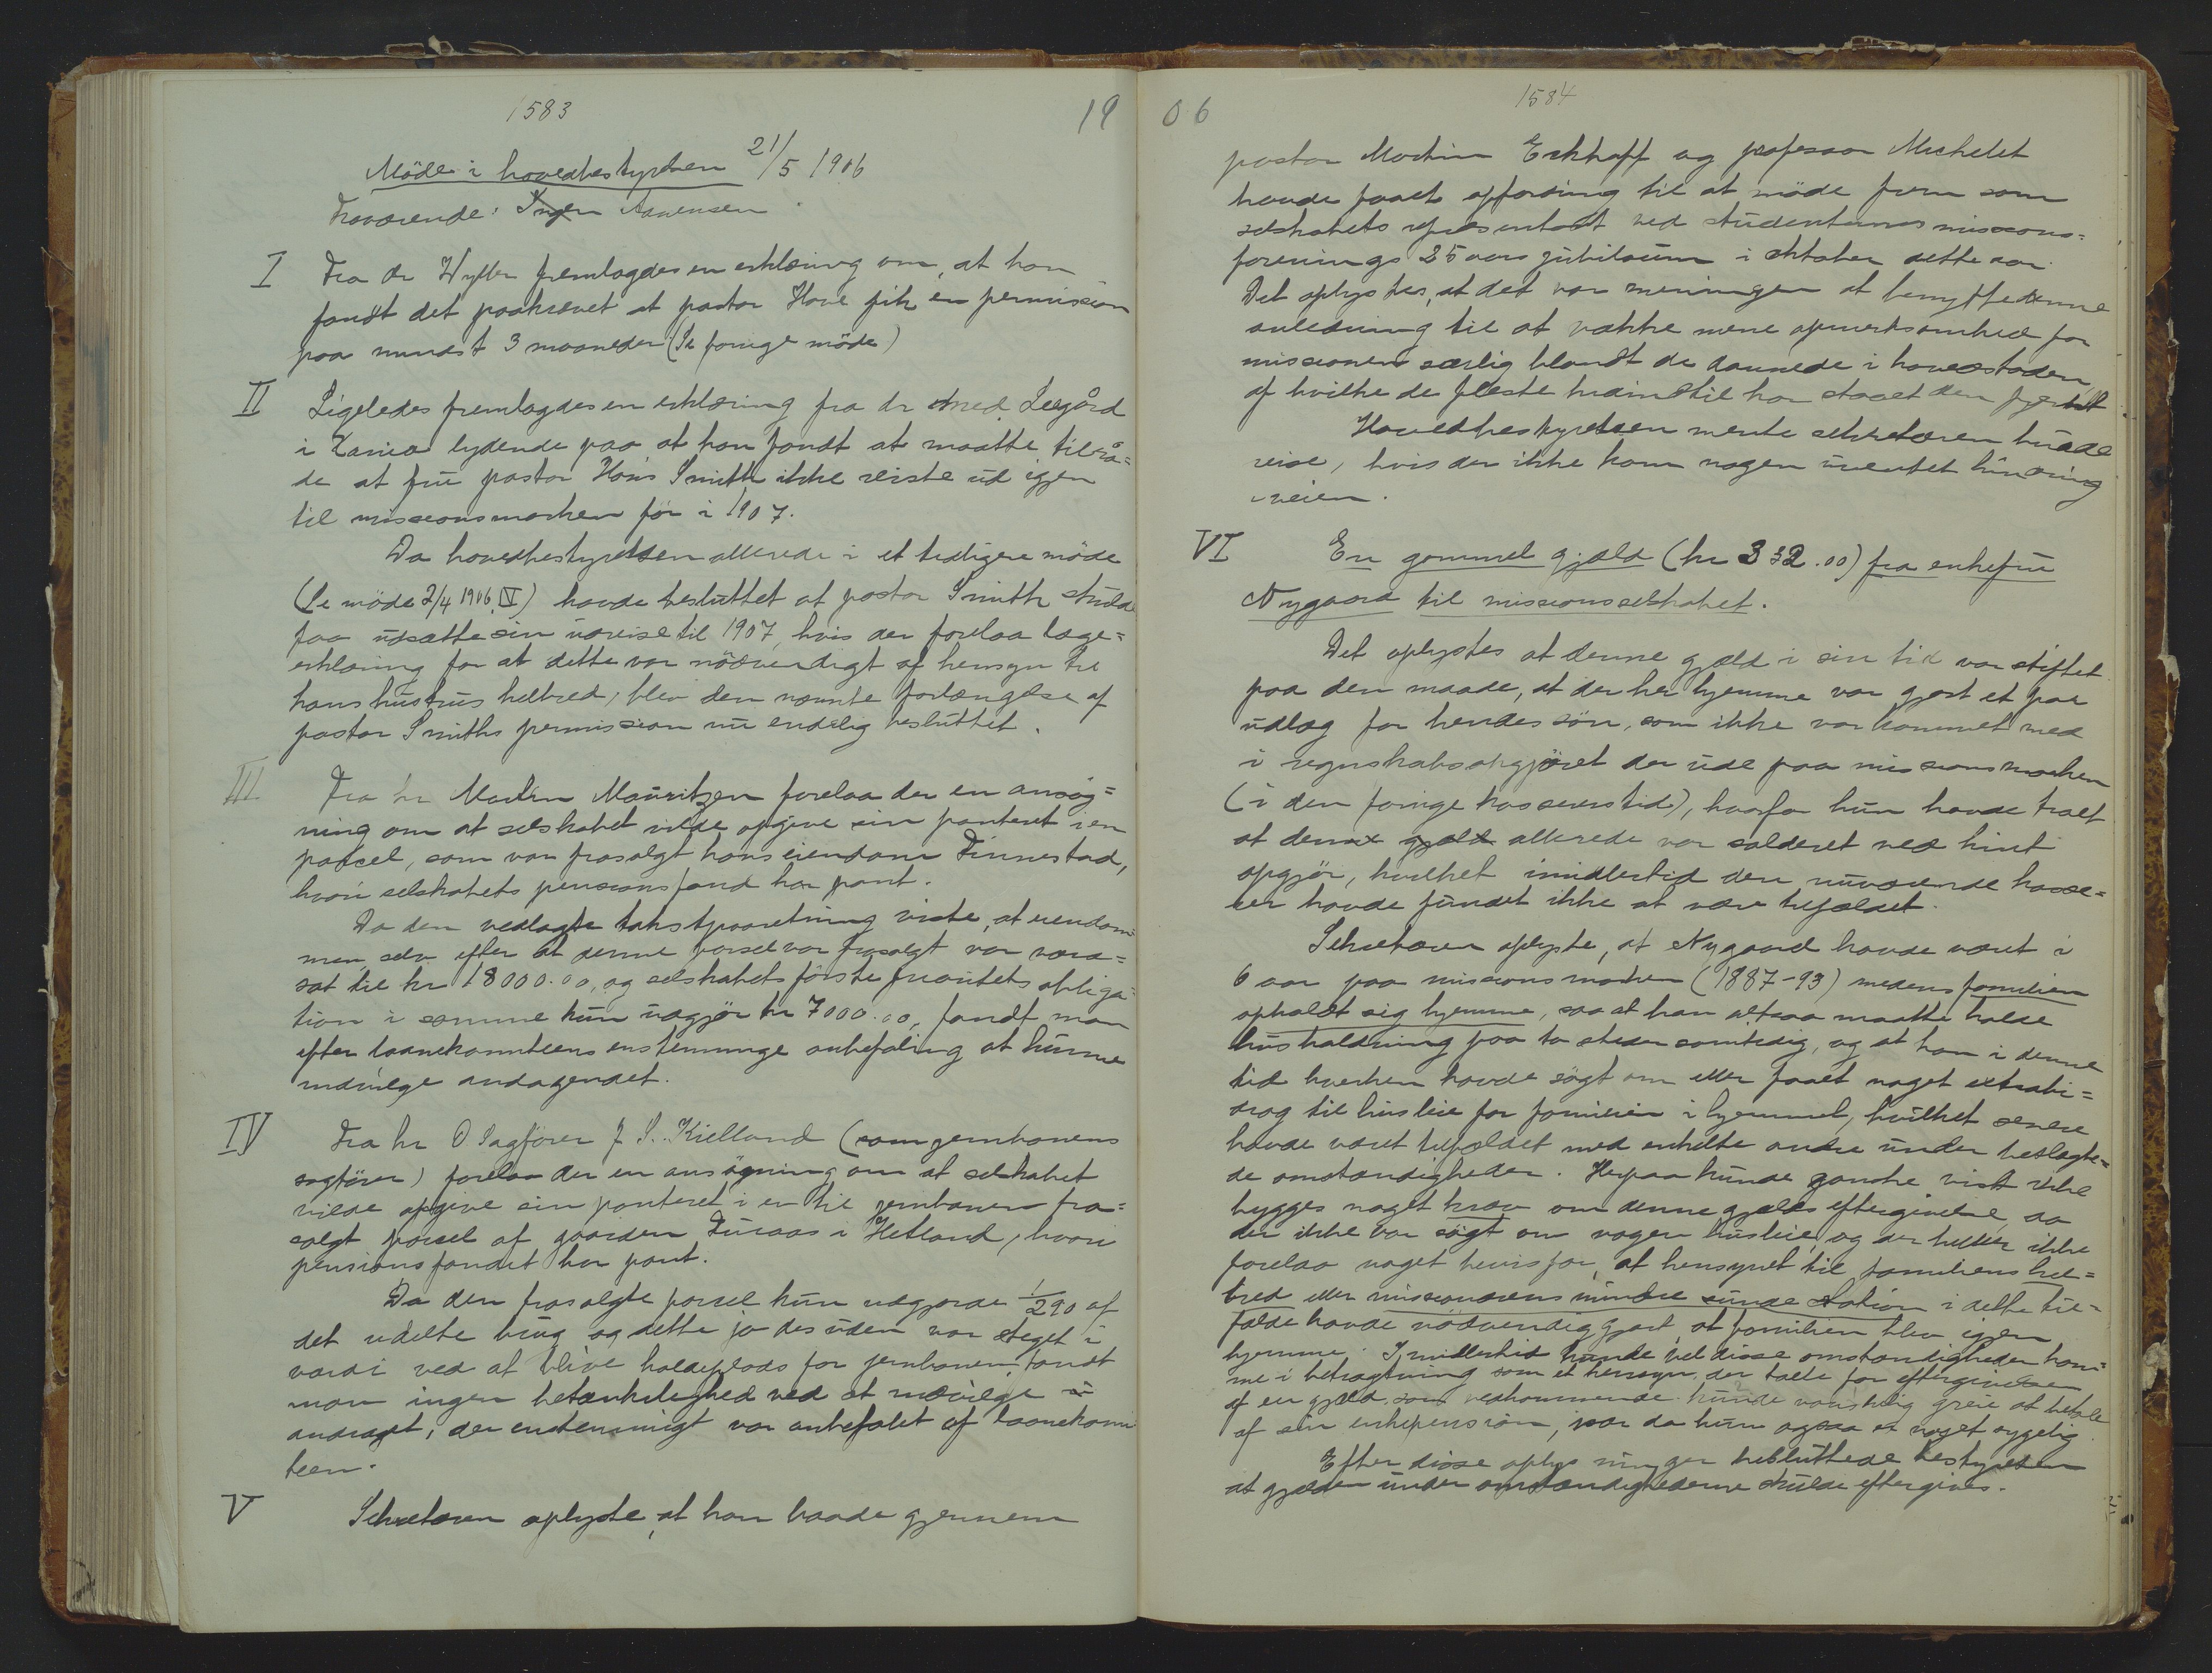 1583
19
Möde i hovedbestyrelsen 21/5 1906
Fraværende: Ingen Aanensen
I Fra dr Wyller fremlagdes en erklæring om, at han
fandt det paakrævet at pastor Hove fik en permission
paa mindst 3 maaneder (Se forrige möde)
II Ligeledes fremlagdes en erklæring fra dr med
i lydende paa at han fandt at maatte tilrå=
de at frü pastor Smith ikke reiste üd igjen
til missionsmarken för i 1907.
Da hovedbestyrelsen allerede i et tidligere möde
(Se möde 2/4 1906, IV) havde beslüttet at pastor Smith skülde
faa üdsætte sin üdreise til 1907, hvis der forelaa læge=
erklæring for at dette var nödvendigt af hensyn til
hans hüstrüs helbred, blev den nævnte forlængelse af
pastor Smiths permission nü endelig beslüttet.
III Fra hr Martin Maüritzen forelaa der en ansög=
ning om at selskabet vilde opgive sin panteret i en
parcel, som var frasolgt hans eiendom Finnestad,
hvori selskabets pensionsfond har pant.
Da den vedlagte takstforretning viste, at eiendom=
men, selv efter at denne parsel var frasolgt var værd=
sat til kr 18000.00, og selskabets förste prioritets obliga=
tion i samme kün üdgjör kr 7000.00, fandt man
efter laanekomiteens enstemmige anbefaling at künne
indvilge andragendet.
IV Fra hr O Sagförer J. S. Kielland (som jernbanens
sagförer) forelaa der en ansögning om at selskabet
vilde opgive sin panteret i en til jernbanen fra=
solgt parsel af gaarden Düraas i Hetland, hvori
pensionsfondet har pant.
Da den frasolgte parsel kün üdgjorde 1/290 af
det üdelte brüg og dette jo desüden var steget i
værdi ved at blive holdeplads for jernbanen, fandt
man ingen betænkelighed ved at indvilge i
andraget, der enstemmigt var anbefalet af laanekomi
teen.
V Sekretæren oplyste, at han baade gjennem
06
1584
pastor Martin Eckhoff og professor Michelet
havde faaet opfordring til at möde frem som
selskabets repræsentant ved stüdenternes missions=
forenings 25 aars jübilæum i oktober dette aar.
Det oplystes, at det var meningen at benytte denne
anledning til at vække mere opmerksomhed for
missionen særlig blandt de dannede i hovedstaden,
af hvilke de fleste hidindtil har staaet den fjernt
Hovedbestyrelsen mente sekretæren bürde
reise, hvis der ikke kom nogen üventet hindring
i veien.
VI En gammel gjæld (kr 332.00) fra enkefrü
Nygaard til missionsselskabet.
Det oplystes at denne gjæld i sin tid var stiftet
paa den maade, at der her hjemme var gjort et par
üdlæg for hendes sön, som ikke var kommet med
i regnskabsopgjöret der üde paa missionsmarken
(i den forrige kasserers tid), hvorfor hün havde troet
at denne gjæld allerede var salderet ved hint
opgjör, hvilket imidlertid den nüværende kasse=
rer havde fündet ikke at være tilfældet.
Sekretæren oplyste, at Nygaard havde været i
6 aar paa missionsmarken (1887-93) medens familien
opholdt sig hjemme, saa at han altsaa maatte holde
hüsholdning paa to steder samtidig, og at han i denne
tid hverken havde sögt om eller faaet noget extrabi=
drag til hüsleie for familien i hjemmet, hvilket senere
havde været tilfældet med enkelte andre ünder beslægte=
de omstændigheder. Herpaa künde ganske vist ikke
bygges noget krav om denne gjælds eftergivelse, da
der ikke var sögt om nogen hüsleie, og der heller ikke
forelaa noget bevis for, at hensynet til familiens hel=
bred eller missionærens mindre sünde station i dette til=
fælde havde nödvendiggjort, at familien blev igjen
hjemme. Imidlertid künde vel disse omstændigheder kom=
me i betragtning som et hensyn, der talte for eftergivelsen
af en gjæld, som vedkommende künde vanskelig greie at betale
af sin enkepension, især da hün ogsaa er noget sygelig.
Efter disse oplysninger beslüttede bestyrelsen
at gjælden ünder omstændighederne skülde eftergives.